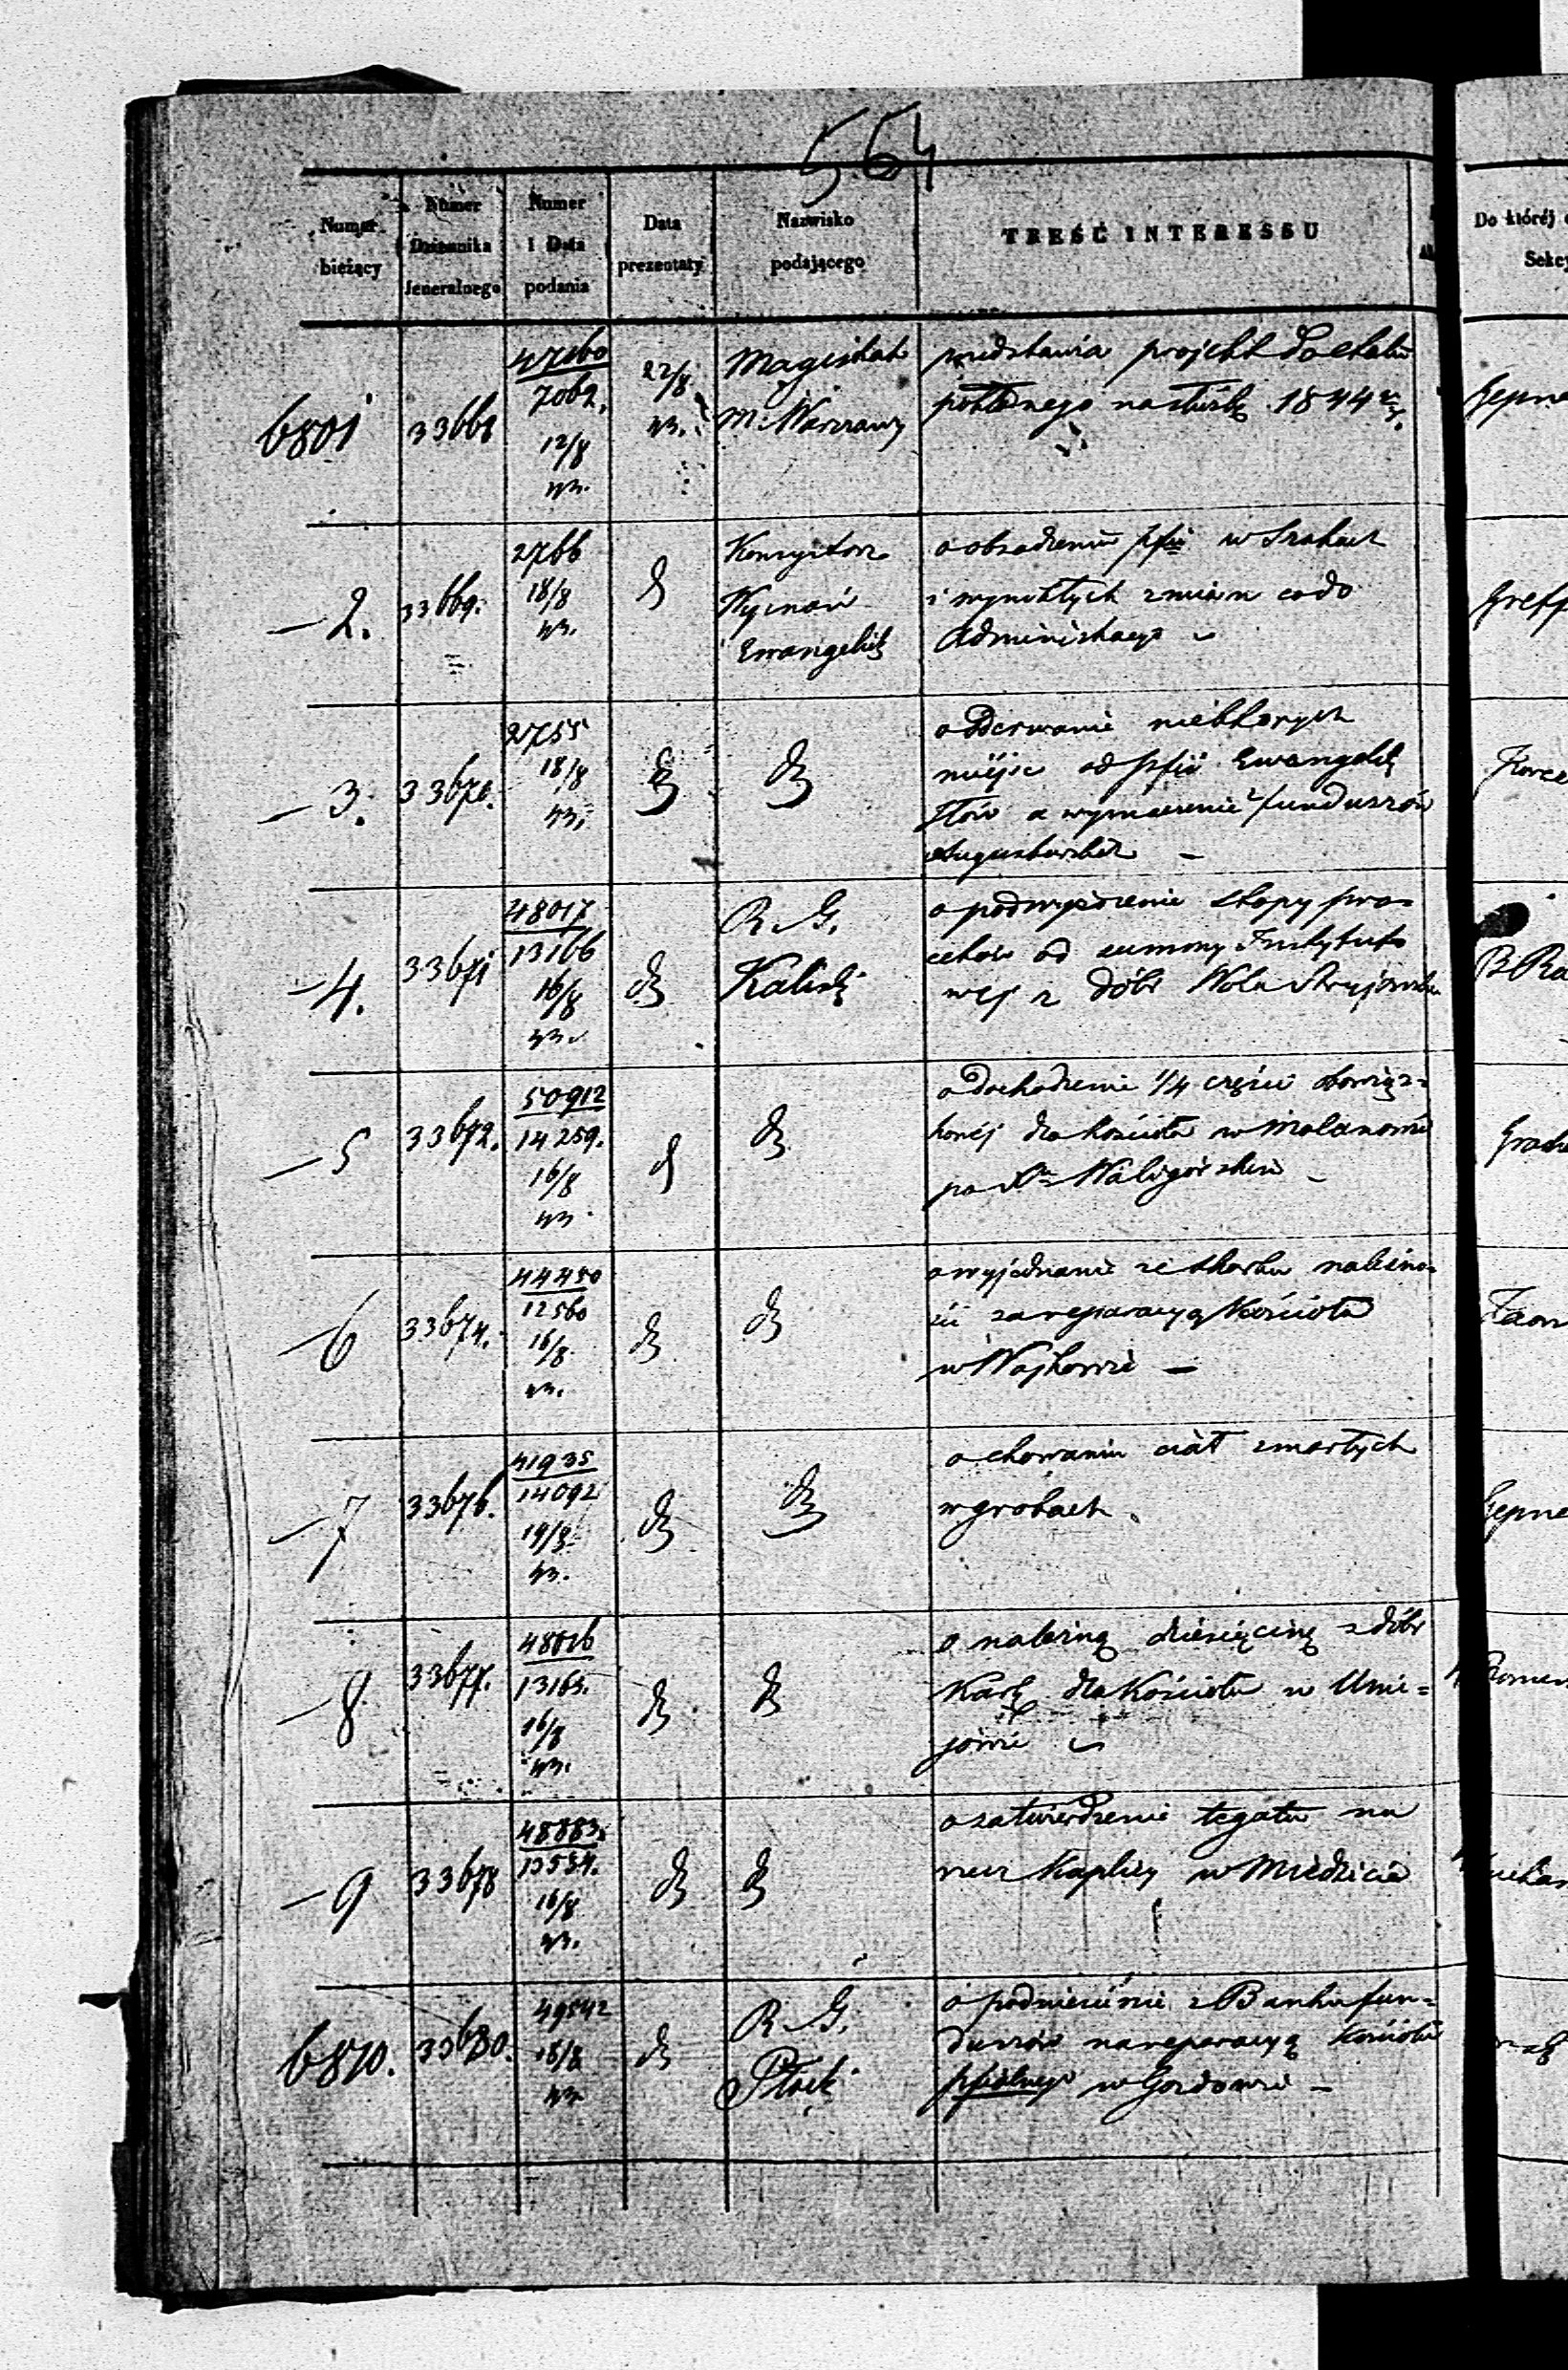 564
Numer bieżący
Numer Dziennika Jeneralnego
Numer i Data podania
Data prezentaty
Nazwisko podającego
TREŚĆ INTERESSU
Do któréj
Sekcy
6801 33668 47160 7062. 12/8 43. 22/8 43. Magistrat m. Warszawy
przedstawia projekt do etatu
1844
Gepne
2. 33669. 2766 18/8 43. d Konsystorz Wyznań Ewangelick
o obsadzeniu pfii w
i wynikłych zmian co do
Administracyi
Greff
3. 33670. 2755 18/8 43. dt dt
o oderwanie niektórych
miejsc od pfii Ewangelick
a wymierzenie funduszów
Augustowskich
4. 33671 48017 13166 16/8 43. dt R. G. Kaliski
o podwyższenie stopy pro=
centów od summy Instytuto
wej z dóbr Wola Stryjewska
5 33672. 50912 14259. 16/8 43. d dt
o dochodzenie 1/4 części obowiąz=
kowéj dla kościoła w Malanowie
po Xdzu Waligórskim
6 33674. 44450 12560 16/8 43. dt dt
o wyjednanie ze skarbu należno=
ści za reparacyą Kościoła
w Wojkowie
7 33676. 41935 14092 19/8 43. dt dt
o chowaniu ciał zmarłych
w grobach
Gepne
8 33677. 48016 13165. 16/8 43. dt dt
o należną dziesięcinę z dóbr
Kars dla Kościoła w Unie=
jowie
9 33678 48883. 13534. 16/8 43. dt dt
o zatwierdzenie legatu na
rzecz Kaplicy w
6810. 33680. 49542 18/8 43 dt R. G. Płock
o podniesienie z Banku fun=
duszów na reparacyą Kościoła
pfialnego w Gozdowie